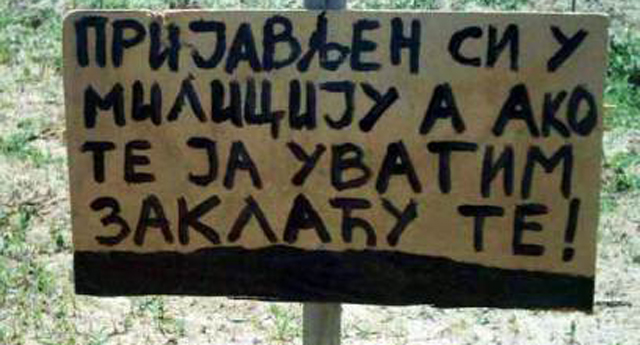 ПРИЈАВЉЕН СИ У
МИЛИЦИЈУ А АКО
ТЕ ЈА УВАТИМ
ЗАКЛАЋУ ТЕ!